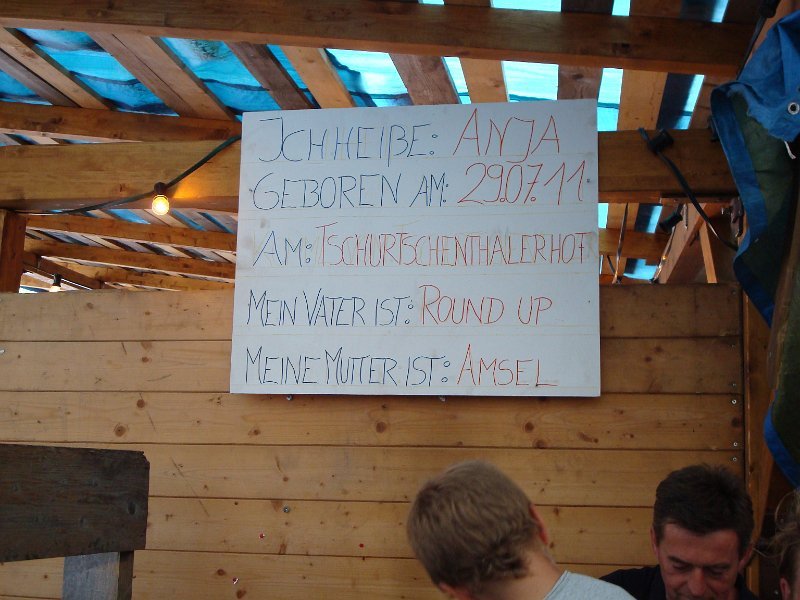 ICH HEIßE: ANJA
GEBOREN AM: 29.07.11
AM: TSCHURTSCHENTHALERHOF
MEIN VATER IST: ROUND UP
MEINE MUTTER IST: AMSEL